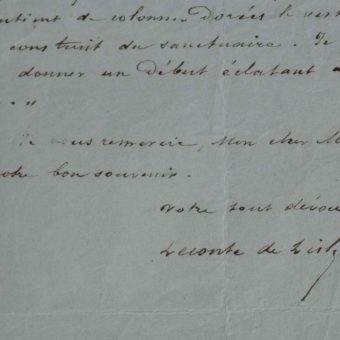 utient de colonnes dorées le vest
construit du sanctuaire. Je
donner un début éclatant
. . "
Je vous remercie, Mon cher M
otre bon souvenir.
Votre tout dévou
Leconte de Lisle